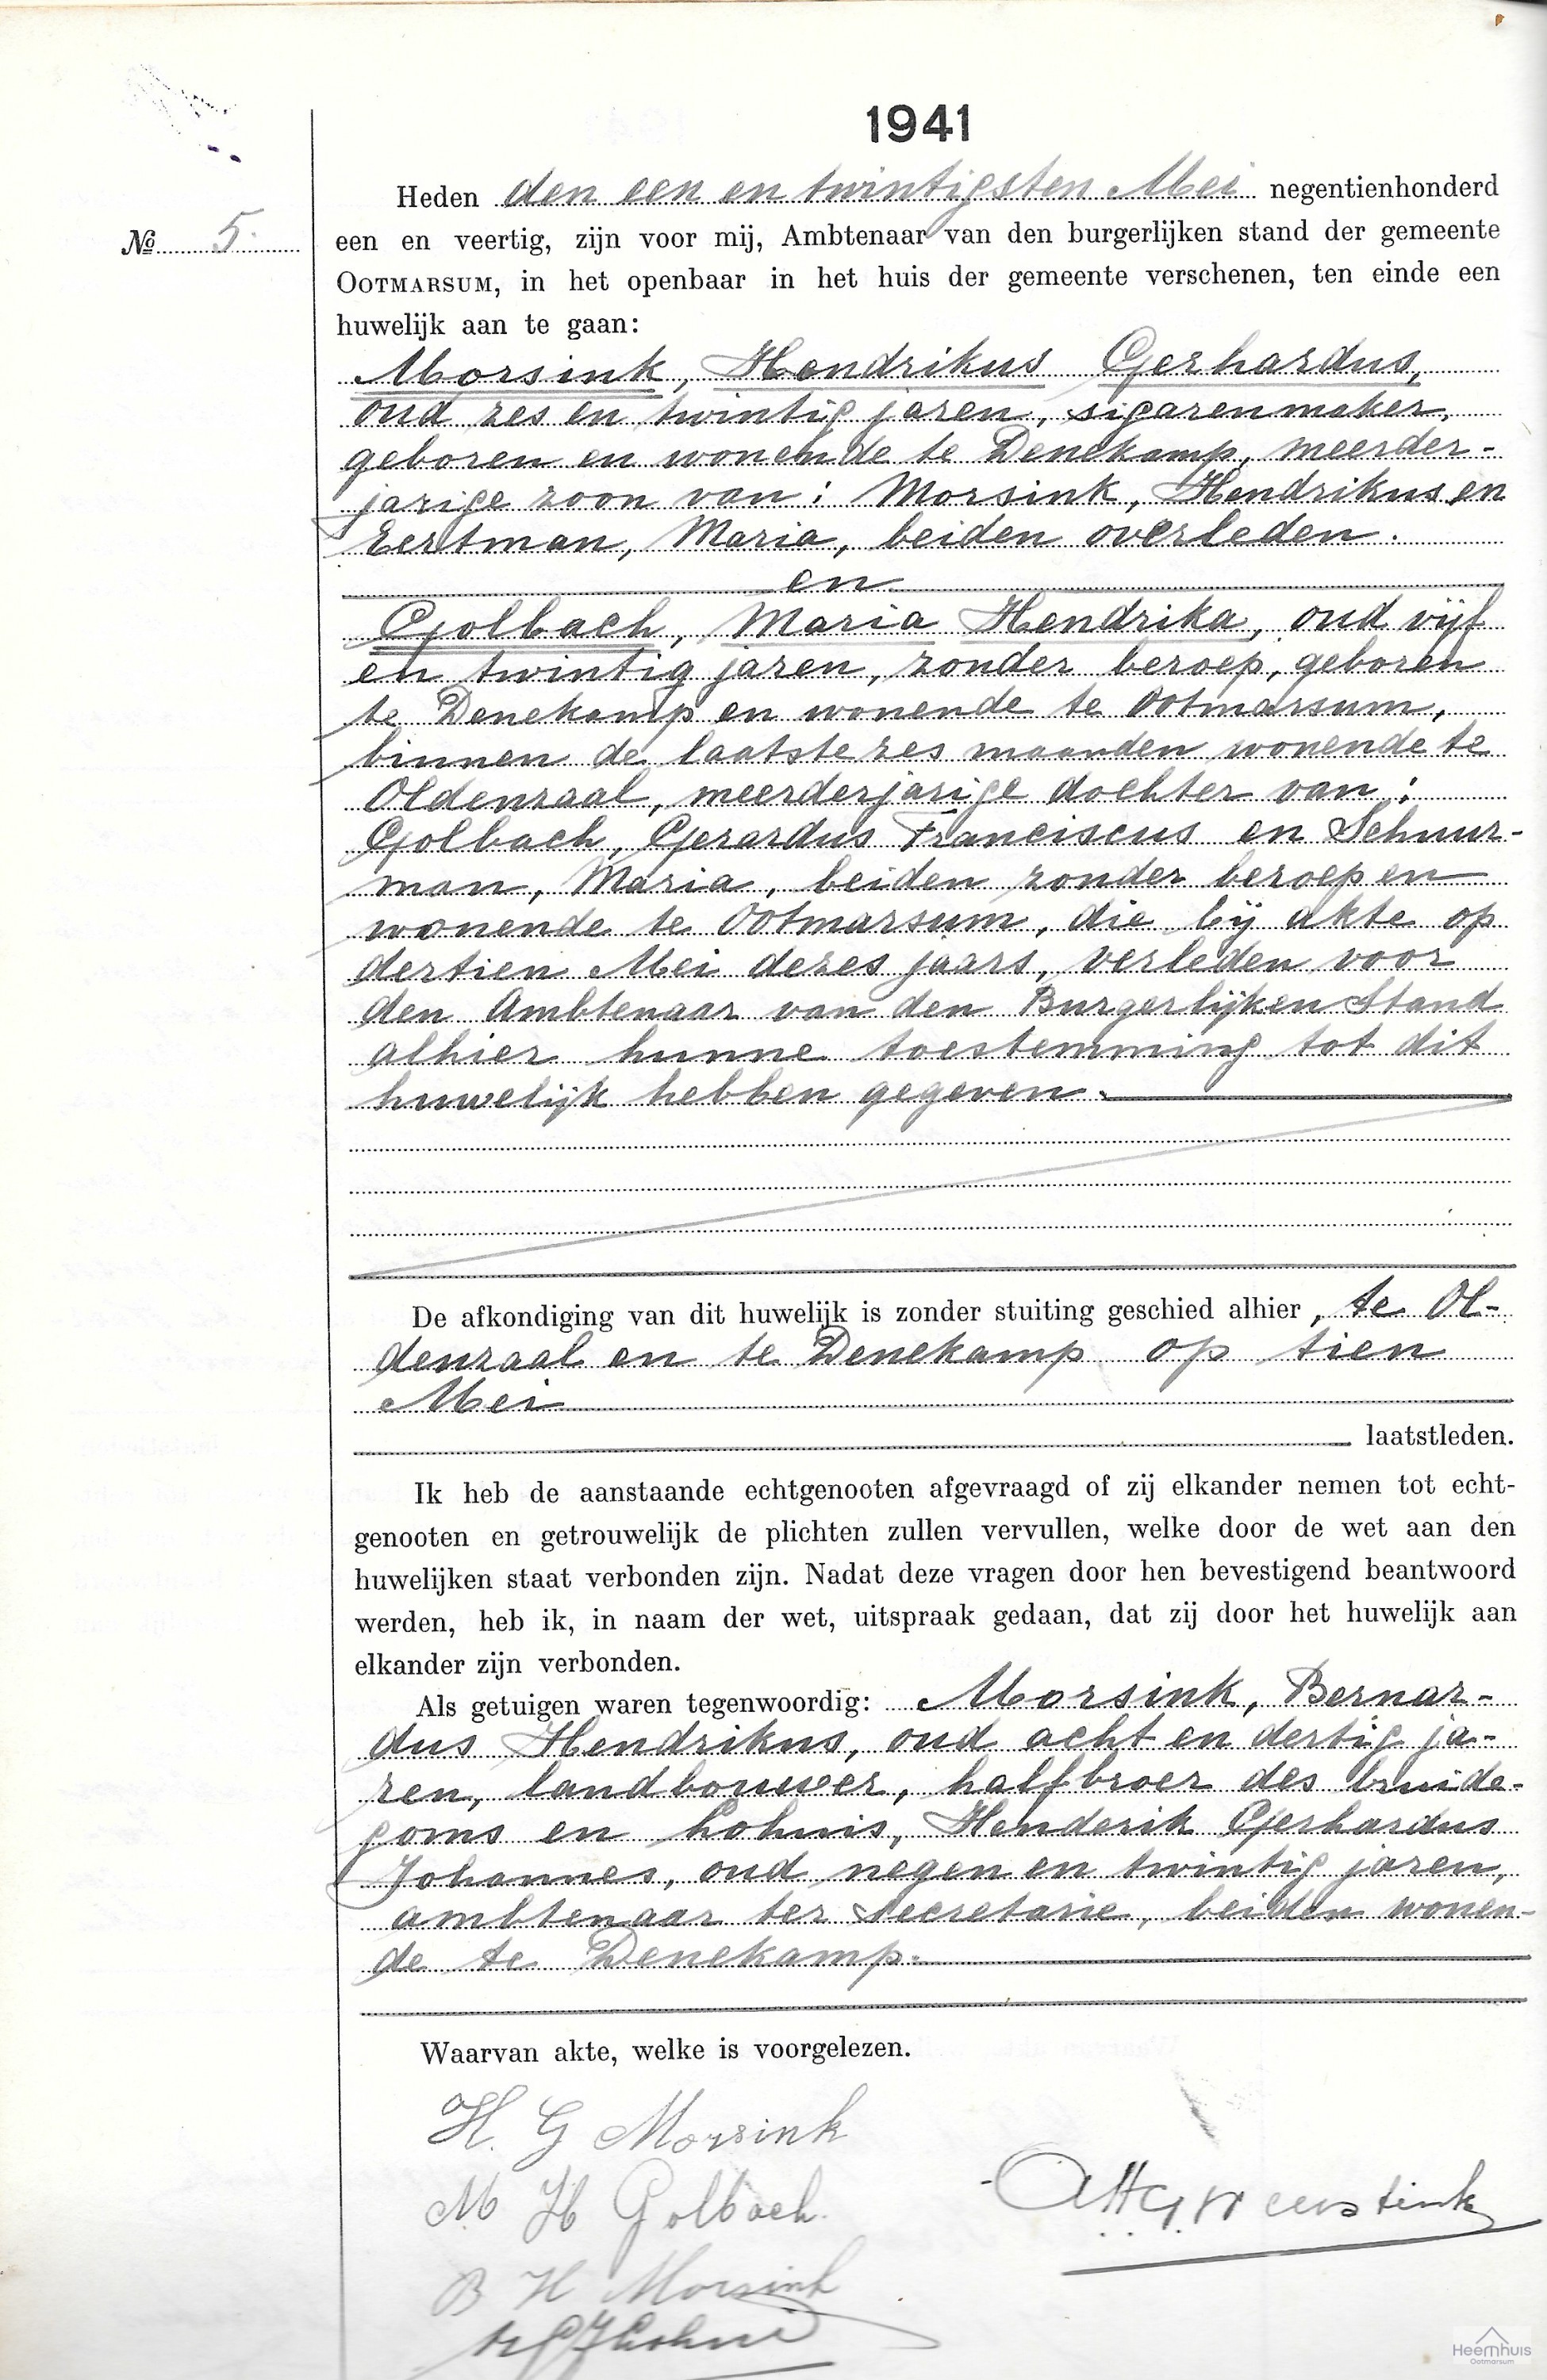 1941
Heden den een en twintigsten Mei negentienhonderd
No 5.
een en veertig, zijn voor mij, Ambtenaar van den burgerlijken stand der gemeente
OOTMARSUM, in het openbaar in het huis der gemeente verschenen, ten einde een
huwelijk aan te gaan:
Morsink, Hendrikus Gerhardus,
oud zes en twintig jaren, sigarenmaker,
geboren en wonende te Denekamp, meerder-
jarige zoon van: Morsink, Hendrikus en
Eertman, Maria, beiden overleden.
en
Golbach, Maria Hendrika, oud vijf
en twintig jaren, zonder beroep, geboren
te Denekamp en wonende te Ootmarsum,
binnen de laatste zes maanden wonende te
Oldenzaal, meerderjarige dochter van:
Golbach, Gerardus Franciscus en Schuur-
man, Maria, beiden zonder beroep en
wonende te Ootmarsum, die bij akte op
dertien Mei dezes jaars, verleden voor
den Ambtenaar van den Burgerlijken Stand
alhier hunne toestemming tot dit
huwelijk hebben gegeven.
De afkondiging van dit huwelijk is zonder stuiting geschied alhier, te Ol-
denzaal en te Denekamp op tien
Mei
laatstleden.
Ik heb de aanstaande echtgenooten afgevraagd of zij elkander nemen tot echt-
genooten en getrouwelijk de plichten zullen vervullen, welke door de wet aan den
huwelijken staat verbonden zijn. Nadat deze vragen door hen bevestigend beantwoord
werden, heb ik, in naam der wet, uitspraak gedaan, dat zij door het huwelijk aan
elkander zijn verbonden.
Als getuigen waren tegenwoordig: Morsink, Bernar-
dus Hendrikus, oud acht en dertig ja-
ren, landbouwer, halfbroer des bruide-
goms en Lohuis, Henderik Gerhardus
Johannes, oud negen en twintig jaren,
ambtenaar ter secretarie, beiden wonen-
de te Denekamp.
Waarvan akte, welke is voorgelezen.
H. G Morsink
M H Golbach.
B H Morsink
Heemhuis
Ootmarsum